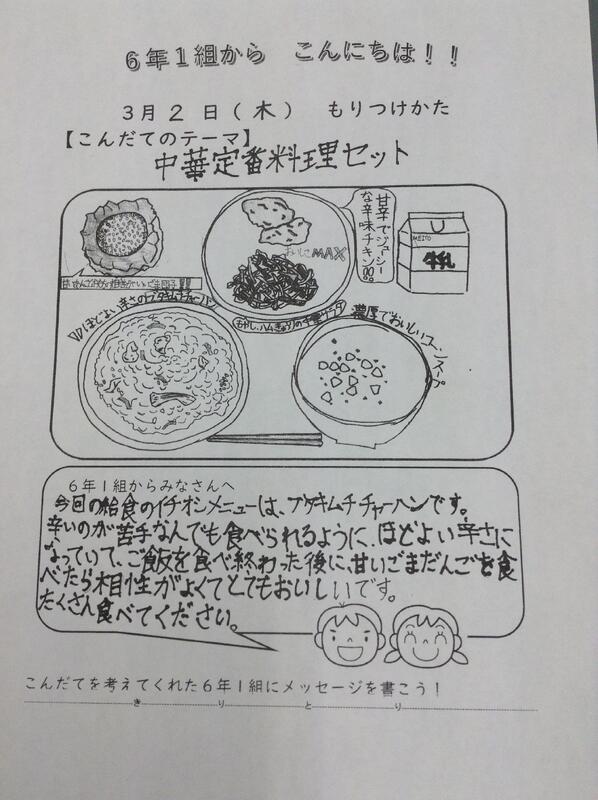 6年1組から こんにちは!!
3月2日(木) もりつけかた
【こんだてのテーマ】
中華定番料理セット
甘辛でジューシーな辛味チキン
おいしさMAX
MEITO
牛乳
ほどよい辛さのブタキムチチャーハン
もやし、ハム、きゅうりの中華サラダ
濃厚でおいしいコーンスープ
6年1組からみなさんへ
今回の給食のイチオシメニューは、ブタキムチチャーハンです。
辛いのが苦手なんでも食べられるように、ほどよい辛さに
なっていて、ご飯を食べ終わった後に、甘いごまだんごを食
べたら相性がよくてとてもおいしいです。
たくさん食べてください。
こんだてを考えてくれた6年1組にメッセージを書こう!
きりとり